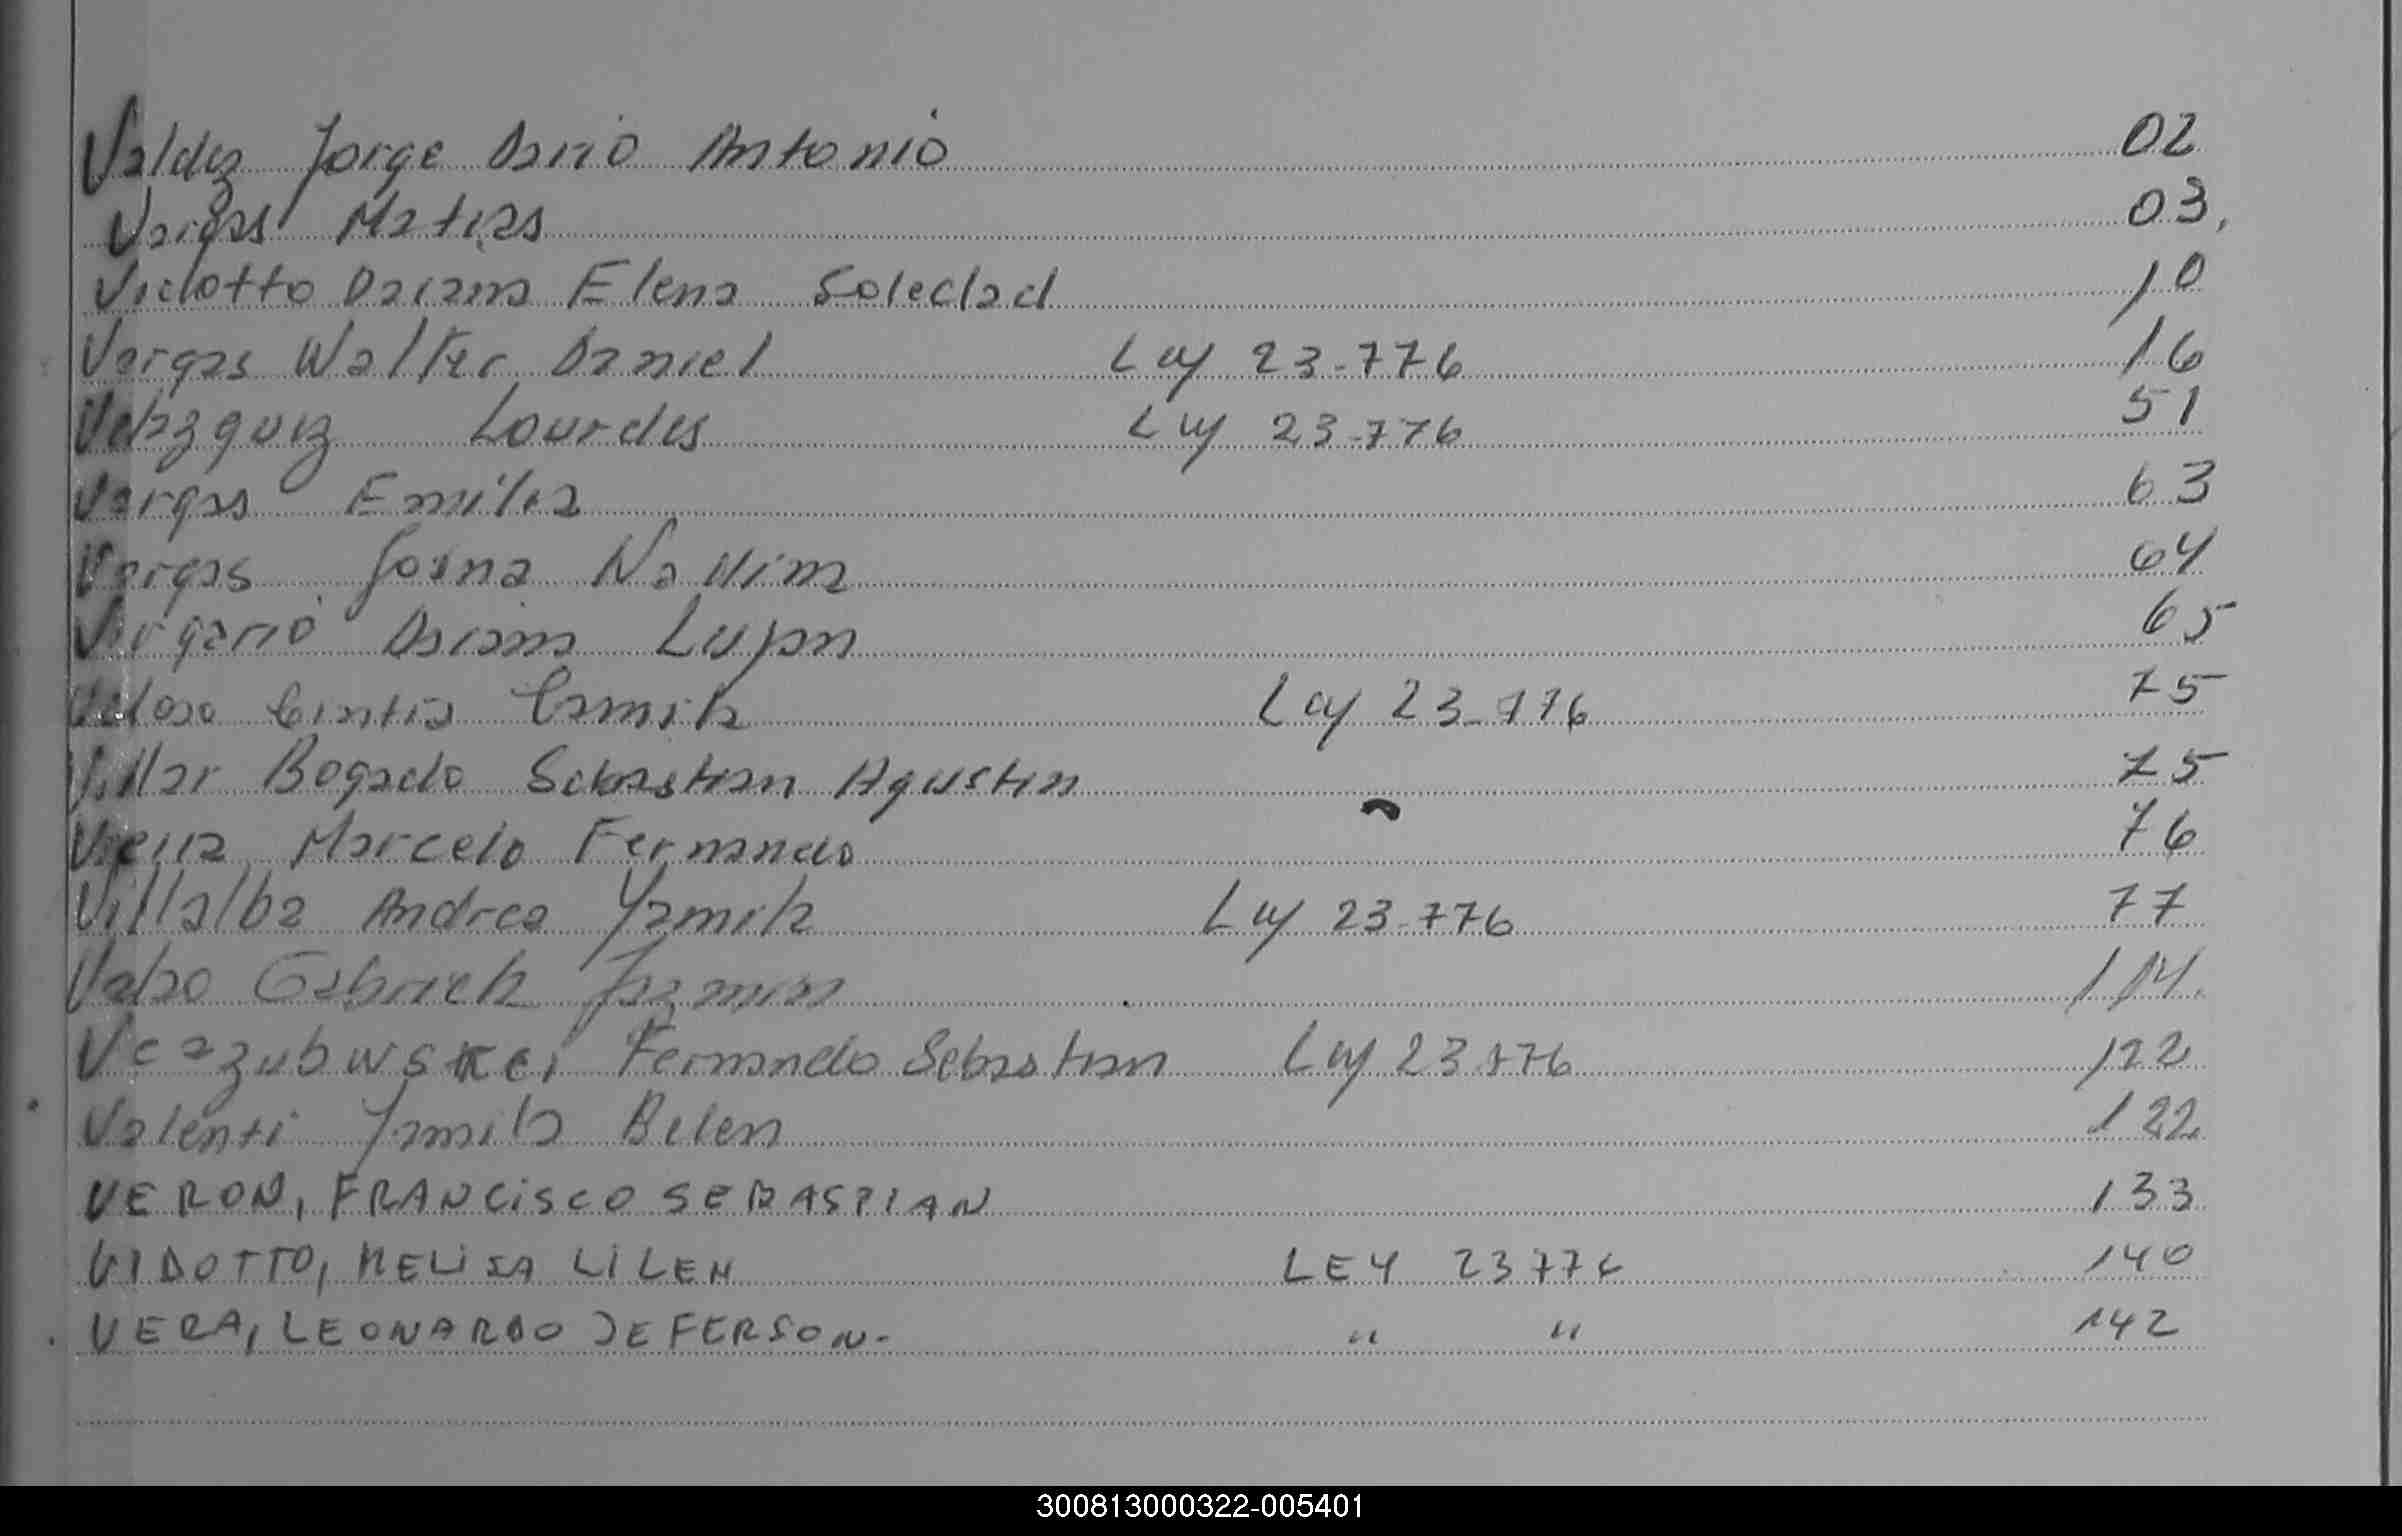 Valdez Jorge Dario Antonio 02
Vargas Matias 03.
Vidotto Daiana Elena Soledad 10
Vargas Walter Daniel Ley 23.776 16
Velazquez Lourdes Ley 23.776 51
Vargas Emilia 63
Vargas Joana 64
Daiana Lujan 65
Veloso Cintia Camila Ley 23.776 75
Villar Bogado Sebastian Agustin 75
Marcelo Fernando 76
Villalba Andrea Yamila Ley 23.776 77
Gabriela Jazmin
Fernando Sebastian Ley 23.776 122
Valenti Yamila Belen 122
VERON, FRANCISCO SEBASTIAN 133
VIDOTTO, MELISA LILEN LEY 23776 140
VERA, LEONARDO JEFERSON. " " 142
300813000322-005401